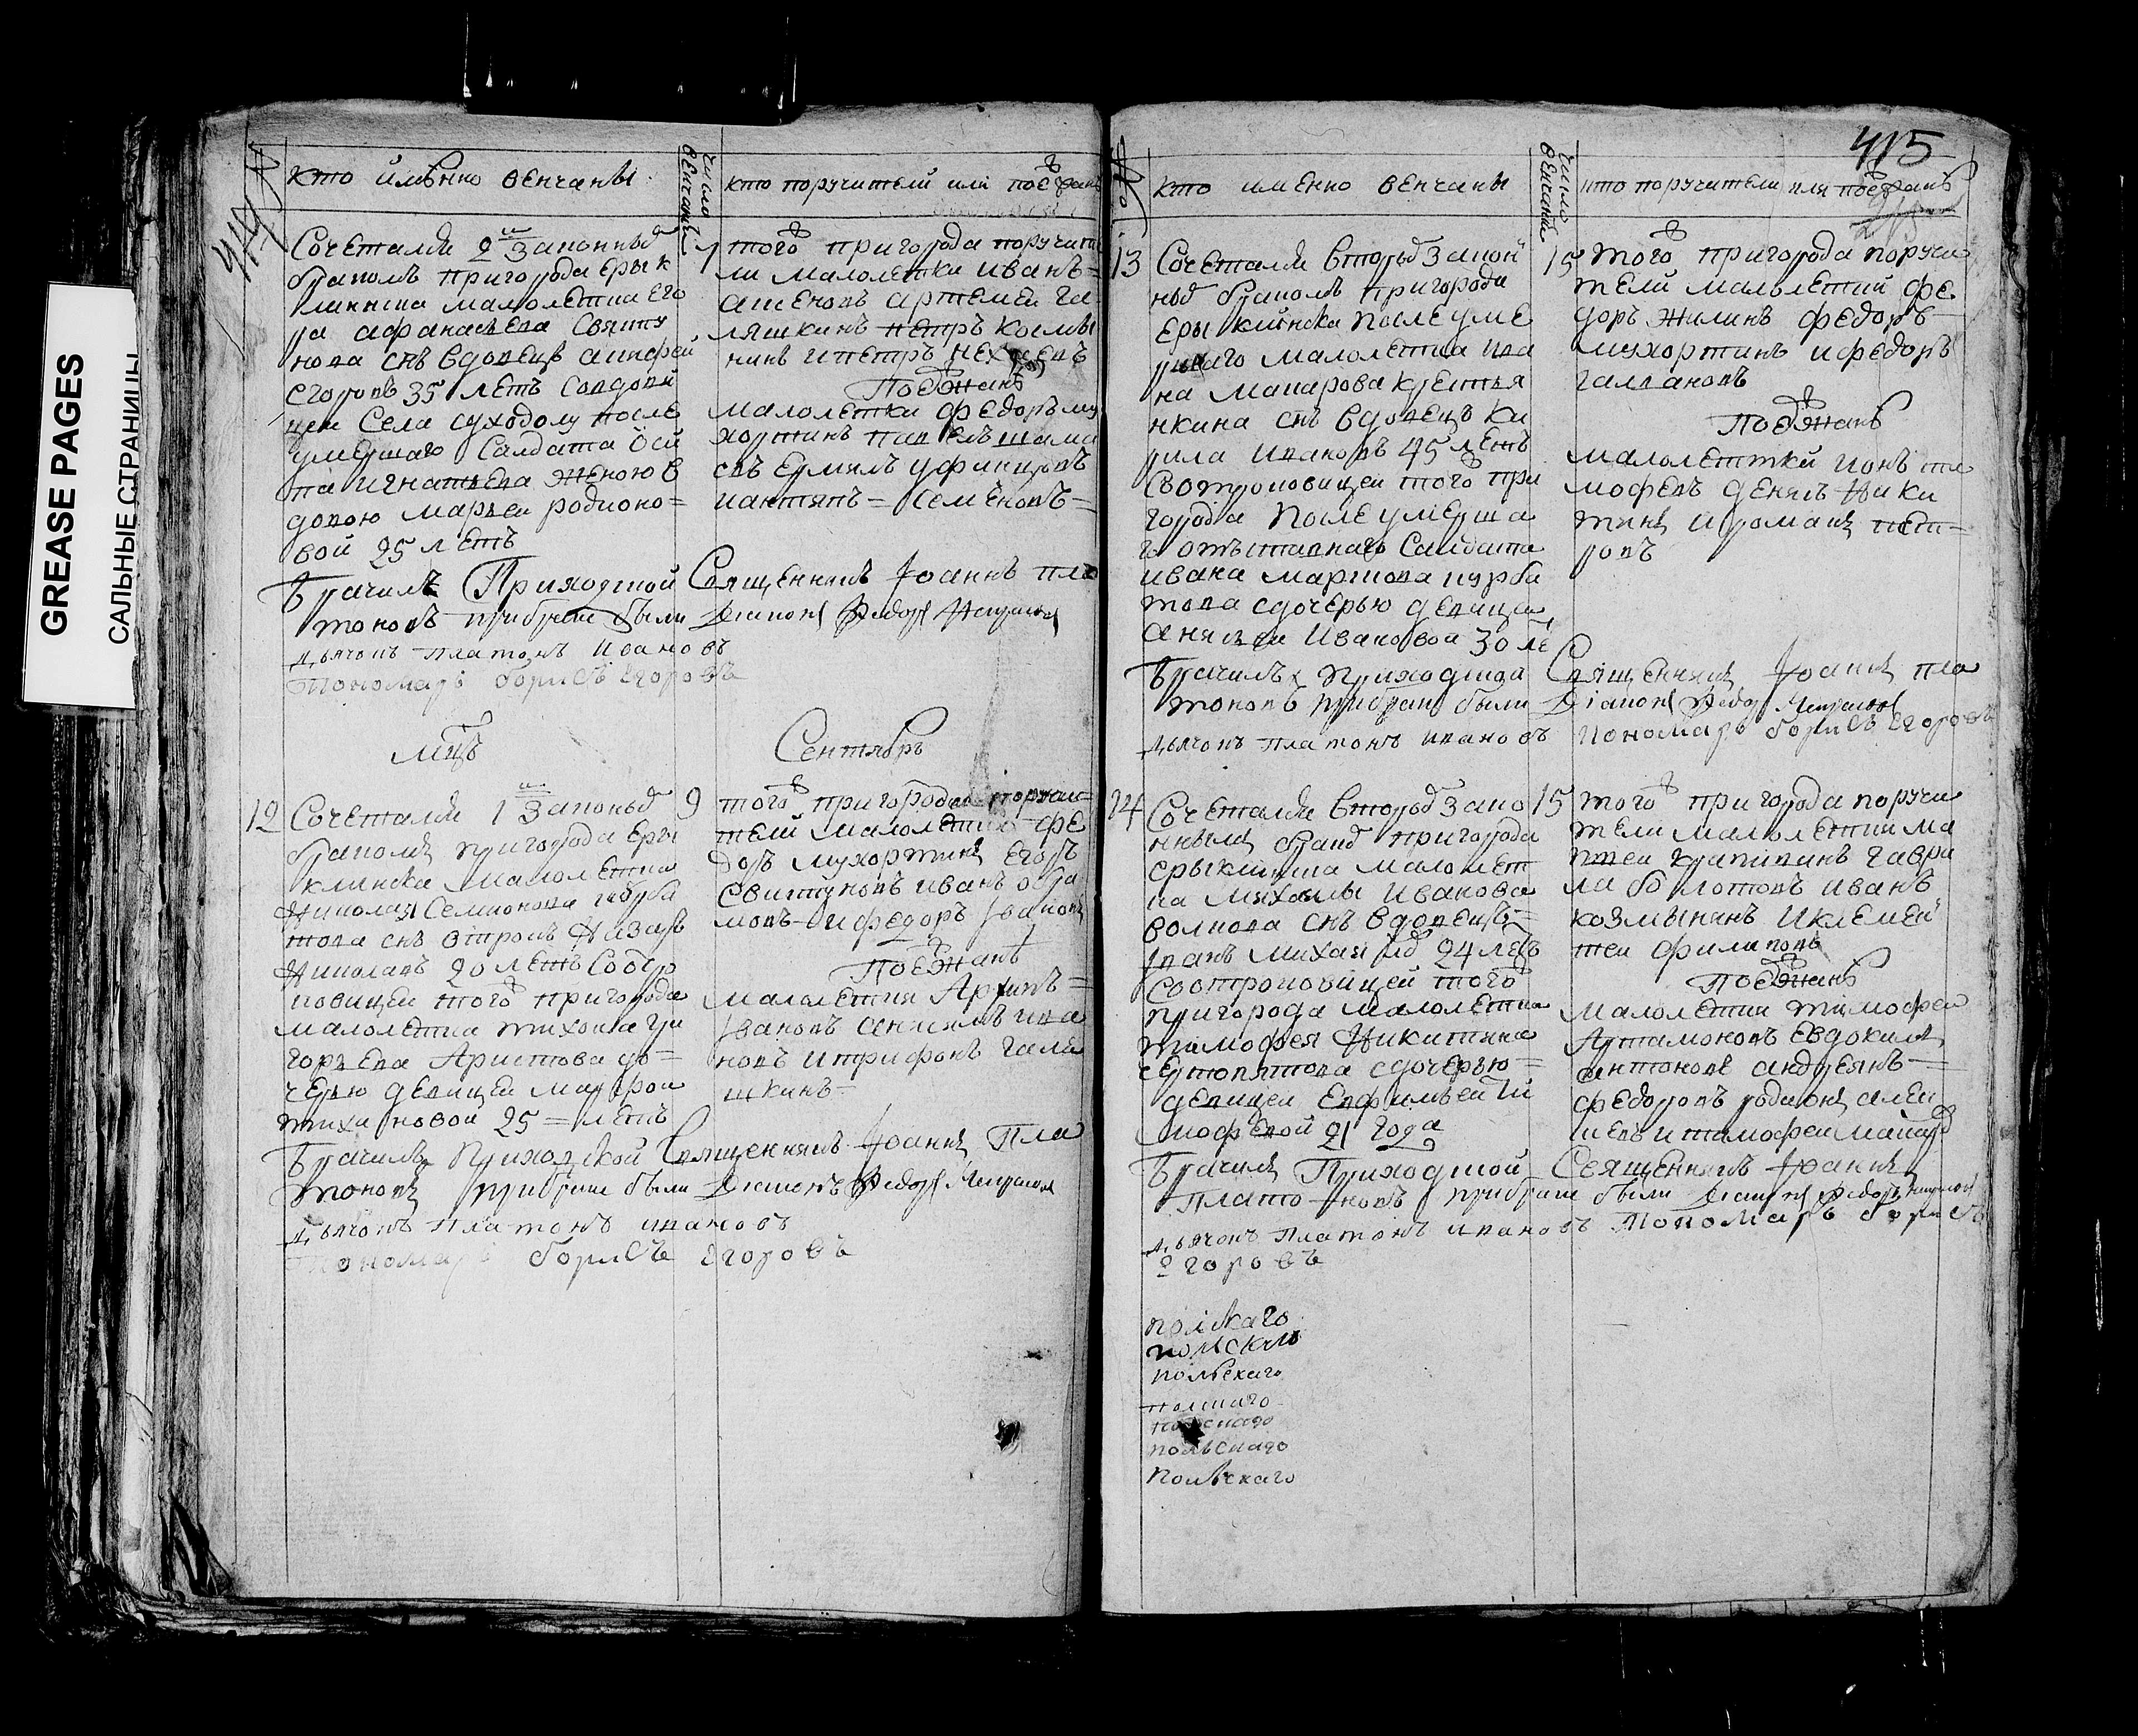 GREASE PAGES
САЛЬНЫЕ СТРАНИЦЫ
414
кто имѣнно венчаны
число венчаніи
кто поручители или поѣзжанѣ
Сочетался 2м законнымъ
бракомъ пригорода Ерык
линска малолетка Его
ра афанасьева Свисту
нова снъ вдовецъ
Егоровъ 35 летъ Совдови
цеи Села суходолу после
умершаго Салдата Оси
па игнатьева женою в
довою марьеи родионо=
вой 25 летъ
1
того пригорода поручите
ли малолетки иванъ=
артемеи га
ляшкинъ петръ козмы
нинъ ипетръ
Поѣзжанѣ
малолетки федоръ му
хортинъ павелъ шама
евъ Ермилъ уфинцовъ
иантипъ= Семеновъ=
Брачилъ Приходской Священникъ Іоаннъ пла
тоновъ прибраке были Діаконъ Федоръ
дьячокъ платонъ ивановъ
Пономарь борисъ Егоровъ
мцъ Сентябрь
12
Сочетался 1м законымъ
бракомъ пригорода Еры
клинска малолетка
Николая Семионова
снъ
Николаевъ 20 летъ Соотро
ковицеи того пригорода
малолетка тихона гри
горьева Аристова до=
черью девицеи матрон
тихоновой 25= летъ
9
того пригорода поручи=
тели малолетки фе
доръ мухортинъ Егоръ
Свистуновъ иванъ абра
мовъ ифедоръ Ивановъ
Поѣзжанѣ
малолетки Архипъ=
Ивановъ анисимъ ива
новъ итрифонъ галя
шкинъ=
Брачилъ Приходской Священникъ Іоаннъ Пла
тоновъ прибраке были Діаконъ Федоръ
дьячокъ платонъ ивановъ
Пономарь борисъ Егоровъ
415
кто именно венчаны
число венчаніи
кто поручители или поѣзжанѣ
13
Сочетался вторымъ закон
нымъ бракомъ пригорода
Ерыклинска после уме
ршаго малолетка ива
на макарова крестья
нкина снъ вдовецъ Ки
рила ивановъ 45 летъ
Соотроковицеи того при
города после умерша
го отъставнаго Салдата
ивана мартова курба
това сдочерью девицы
Ивановой 30 ле
15
того пригорода поручи
тели малолетки фе
доръ жилинъ федоръ
мухортинъ ифедоръ
галвановъ
Поѣзжанѣ
малолетки ионъ ти
мофевъ Ники
тинъ ироманъ пет=
ровъ
Брачилъ Приходцкой Священникъ Іоаннъ пла
тоновъ прибраке были Діаконъ Федоръ
дьячокъ платонъ ивановъ Пономарь борисъ Егоровъ
14
Сочетался вторымъ зако
ннымъ бракъ пригорода
ерыклинска малолет
ка михаилы иванова
волкова снъ вдовецъ=
иванъ михаиловъ 24 летъ
Соотроковицей того
пригорода малолетка
тимофея Никитина
сдочерью=
девицеи Евфимьеи ти
мофевой 21 года
15
того пригорода поручи
тели малолетки ма
твеи крапивинъ гаври
ла болотовъ иванъ
козмынинъ иклемен
теи филиповъ
Поѣзжанѣ
малолетки тимофеи
Артамоновъ Евдокимъ
антоновъ андреянъ=
федоровъ родионъ алек
иевъ итимофеи макаровъ
Брачилъ Приходской Священникъ Іоаннъ
Плато новъ прибраке были Діаконъ Федоръ
дьячокъ платонъ ивановъ Пономарь борисъ
Егоровъ
полскаго
полскаго
польскаго
полскаго
польскаго
польскаго
польскаго